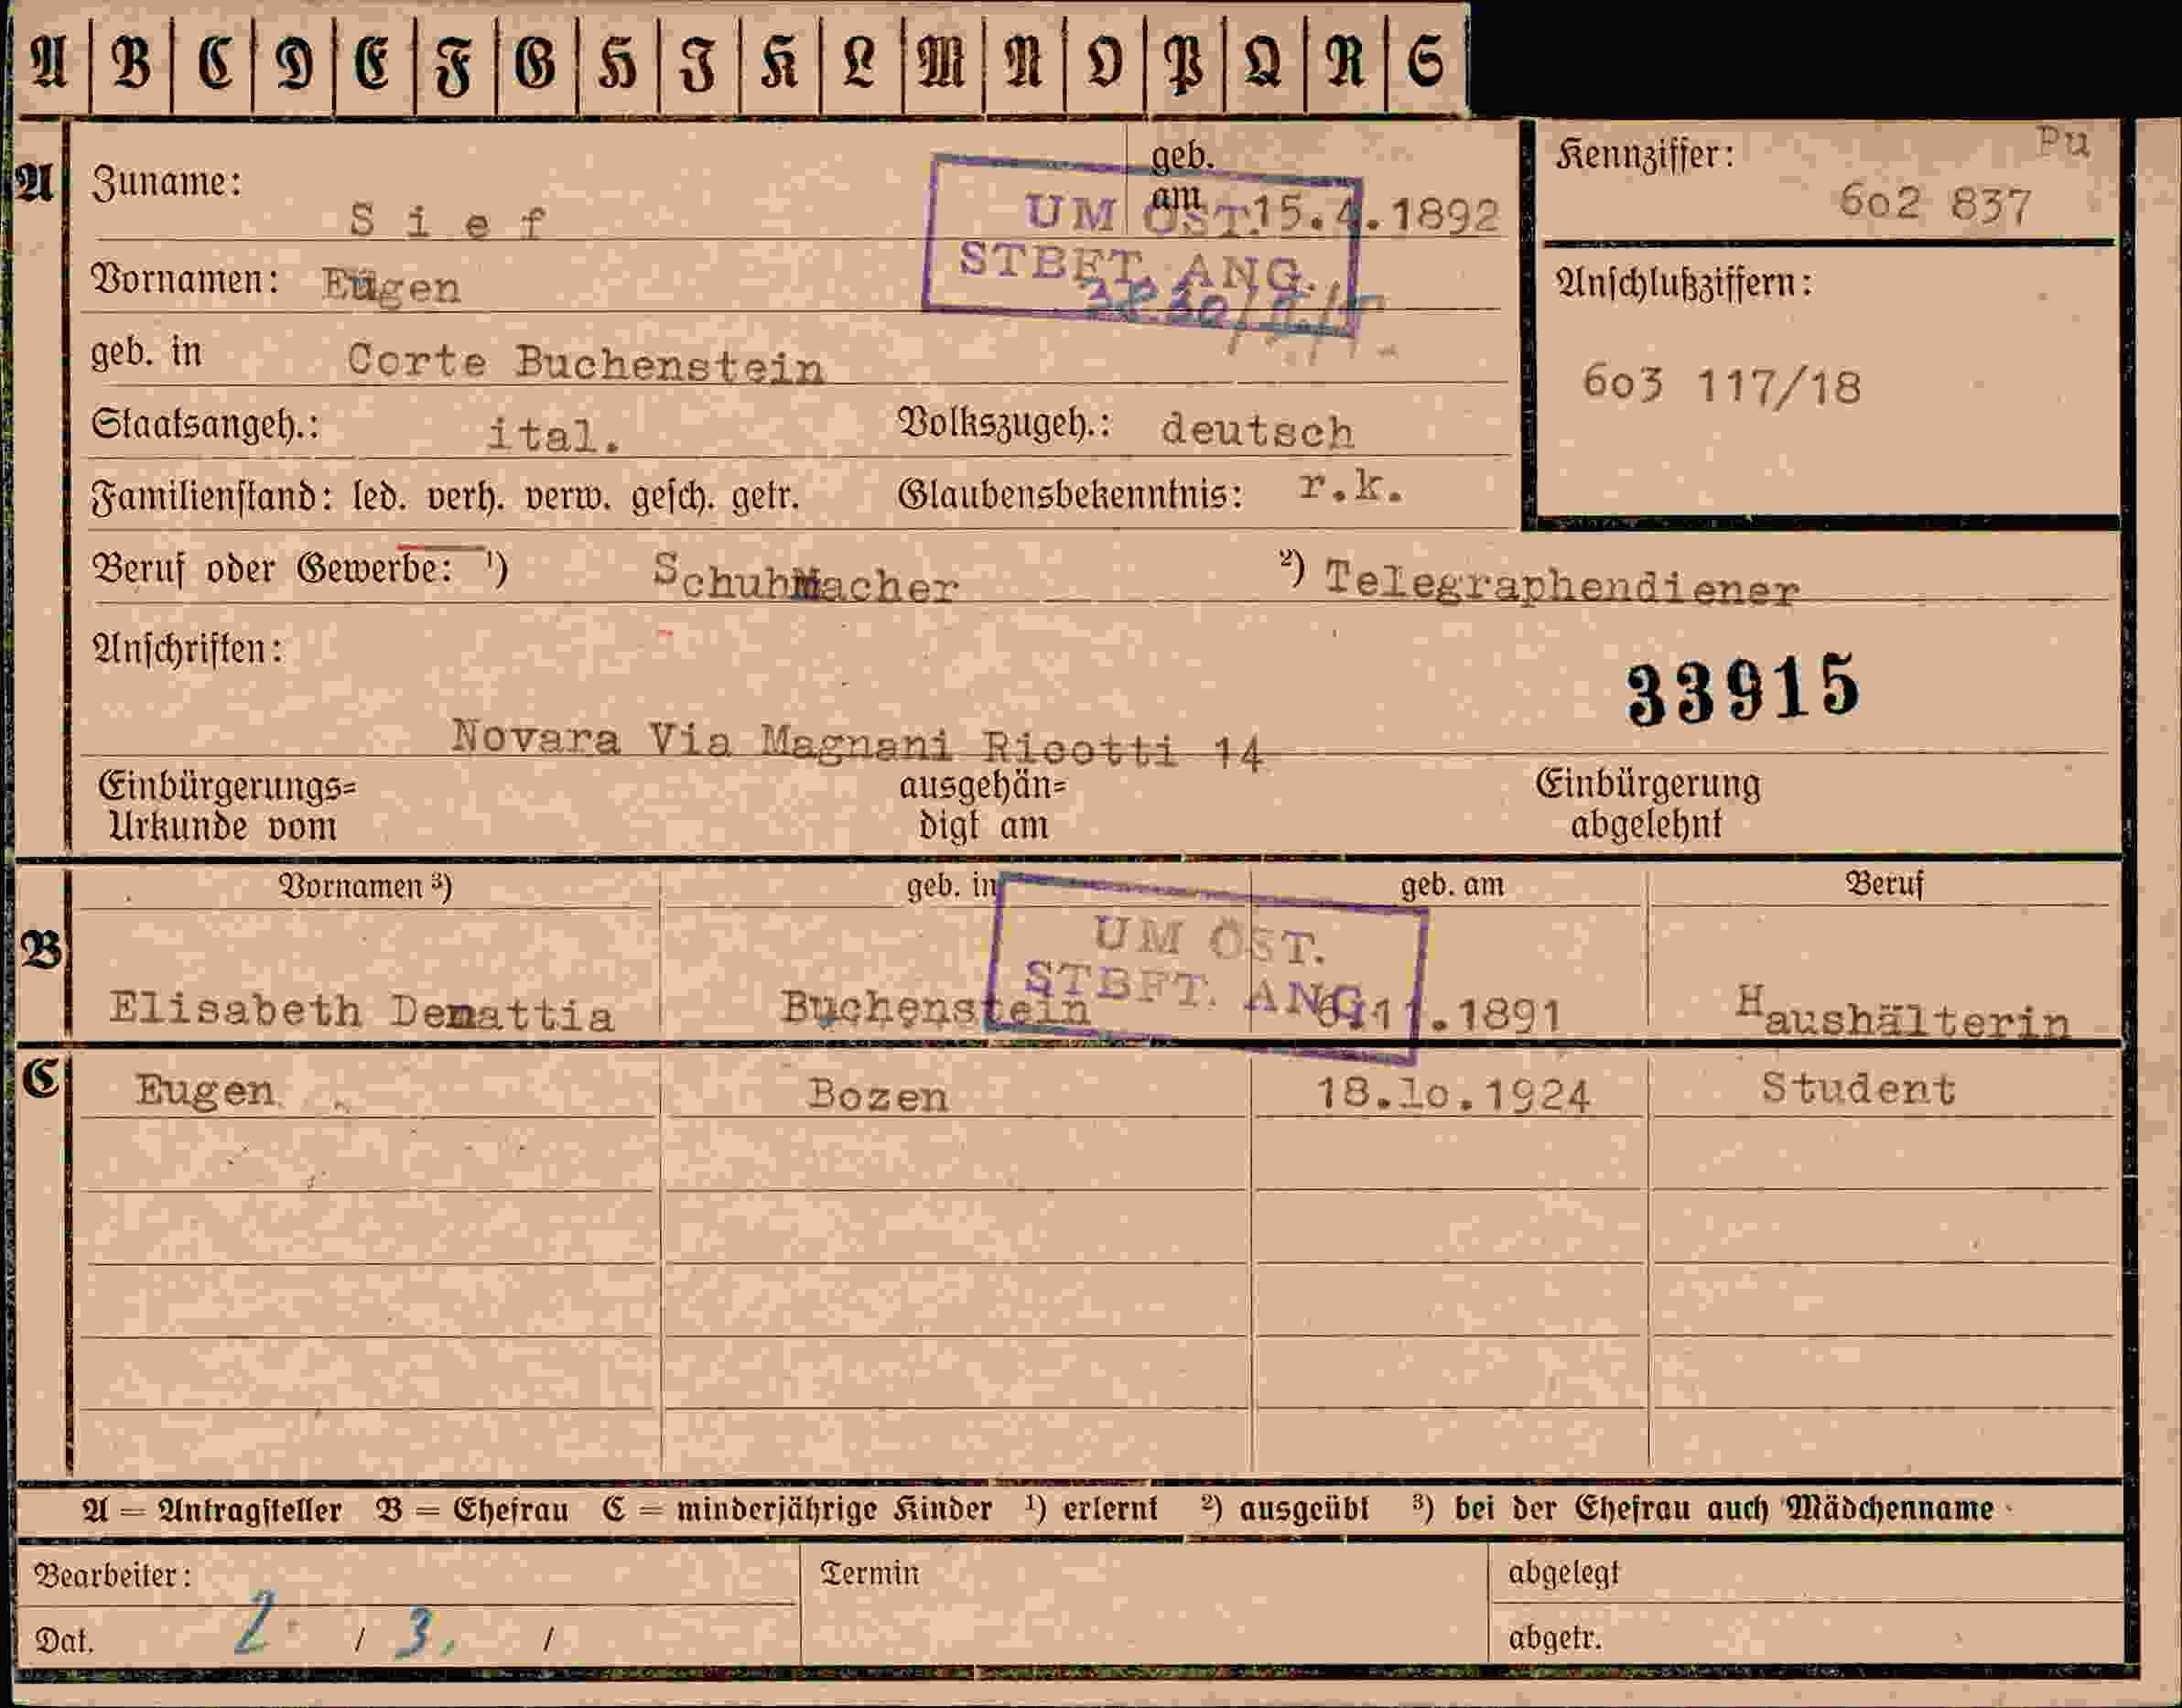 A B C D E F G H J K L M N O P Q R S
A Zuname: Sief geb. am 15.4.1892
Kennziffer: Pu
602 837
UM ÖST.
STBFT. ANG.
Vornamen: Eugen
Anschlußziffern:
geb. in Corte Buchenstein
603 117/18
Staatsangeh.: ital. Volkszugeh.: deutsch
Familienstand: led. verh. verw. gesch. getr. Glaubensbekenntnis: r.k.
Beruf oder Gewerbe: ¹) Schuhmacher ²) Telegraphendiener
Anschriften:
33915
Novara Via Magnani Ricotti 14
Einbürgerungs= ausgehän= Einbürgerung
Urkunde vom digt am abgelehnt
B Vornamen ³) geb. in geb. am Beruf
UM ÖST.
STBFT. ANG.
Elisabeth Demattia Buchenstein 11.1891 Haushälterin
C Eugen Bozen 18.10.1924 Student
A = Antragsteller B = Ehefrau C = minderjährige Kinder ¹) erlernt ²) ausgeübt ³) bei der Ehefrau auch Mädchenname
Bearbeiter: Termin abgelegt
Dat. 2. / 3. / abgetr.